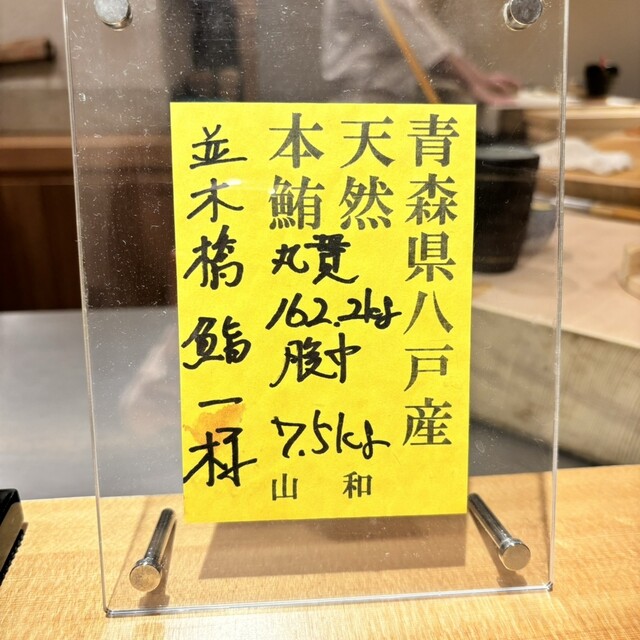 青森県八戸産
天然
本鮪
丸貫
162.2kg
腹中
7.5kg
山和
並木橋鮨一様